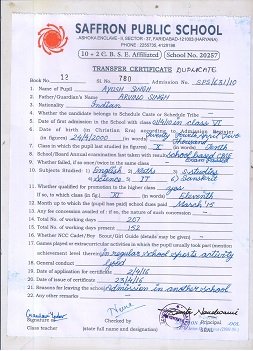 SAFFRON PUBLIC SCHOOL
ASHOKA ENCLAVE-II, SECTOR-37, FARIDABAD-121003 (HARYANA)
PHONE : 2255735, 4129198
10 + 2 C. B. S. E. Affiliated School No. 20257
TRANSFER CERTIFICATE DUPLICATE
Book No. 12 Sl. 780 Admission No. SPS/631/10
1. Name of Pupil AYUSH SINGH
2. Father/Guardian's Name ARVIND SINGH
3. Nationality Indian
4. Whether the candidate belongs to Schedule Caste or Schedule Tribe -
5. Date of first admission in the School with class 6/4/10 in class VI
6. Date of birth (in Christian era) according to Admission Register
(in figures) 24/4/2000 (in words) Twenty fourth April Two thousand
7. Class in which the pupil last studied (in figures) X (in words) Tenth
8. School/Board Annual examination last taken with result School based CBSE Exam Passed
9. Whether failed, if so once/twice in the same class
10. Subjects Studied : 1) English 2) Maths 3) S.studies
4) Science 5) IT 6) Sanskrit
11. Whether qualified for promotion to the higher class yes
If so, to which class (in fig) XI (in words) Eleventh
12. Month up to which the (pupil has paid) school dues paid March'15
13. Any fee concession availed of : if so, the nature of such concession -
14. Total No. of working days 207
15. Total No. of working days present 152
16. Whether NCC Cadet/Boy Scout/Girl Guide (details may be given) -
17. Games played or extracurricular activities in which the pupil usually took part (mention
achievement level therein) In regular school sports activity
18. General conduct Good
19. Date of application for certificate 2/4/15
20. Date of issue of certificate 23/4/15
21. Reasons for leaving the school Admission in another school
22. Any other remarks -
Signature of
Class teacher
(state full name and designation)
Principal
SEAL